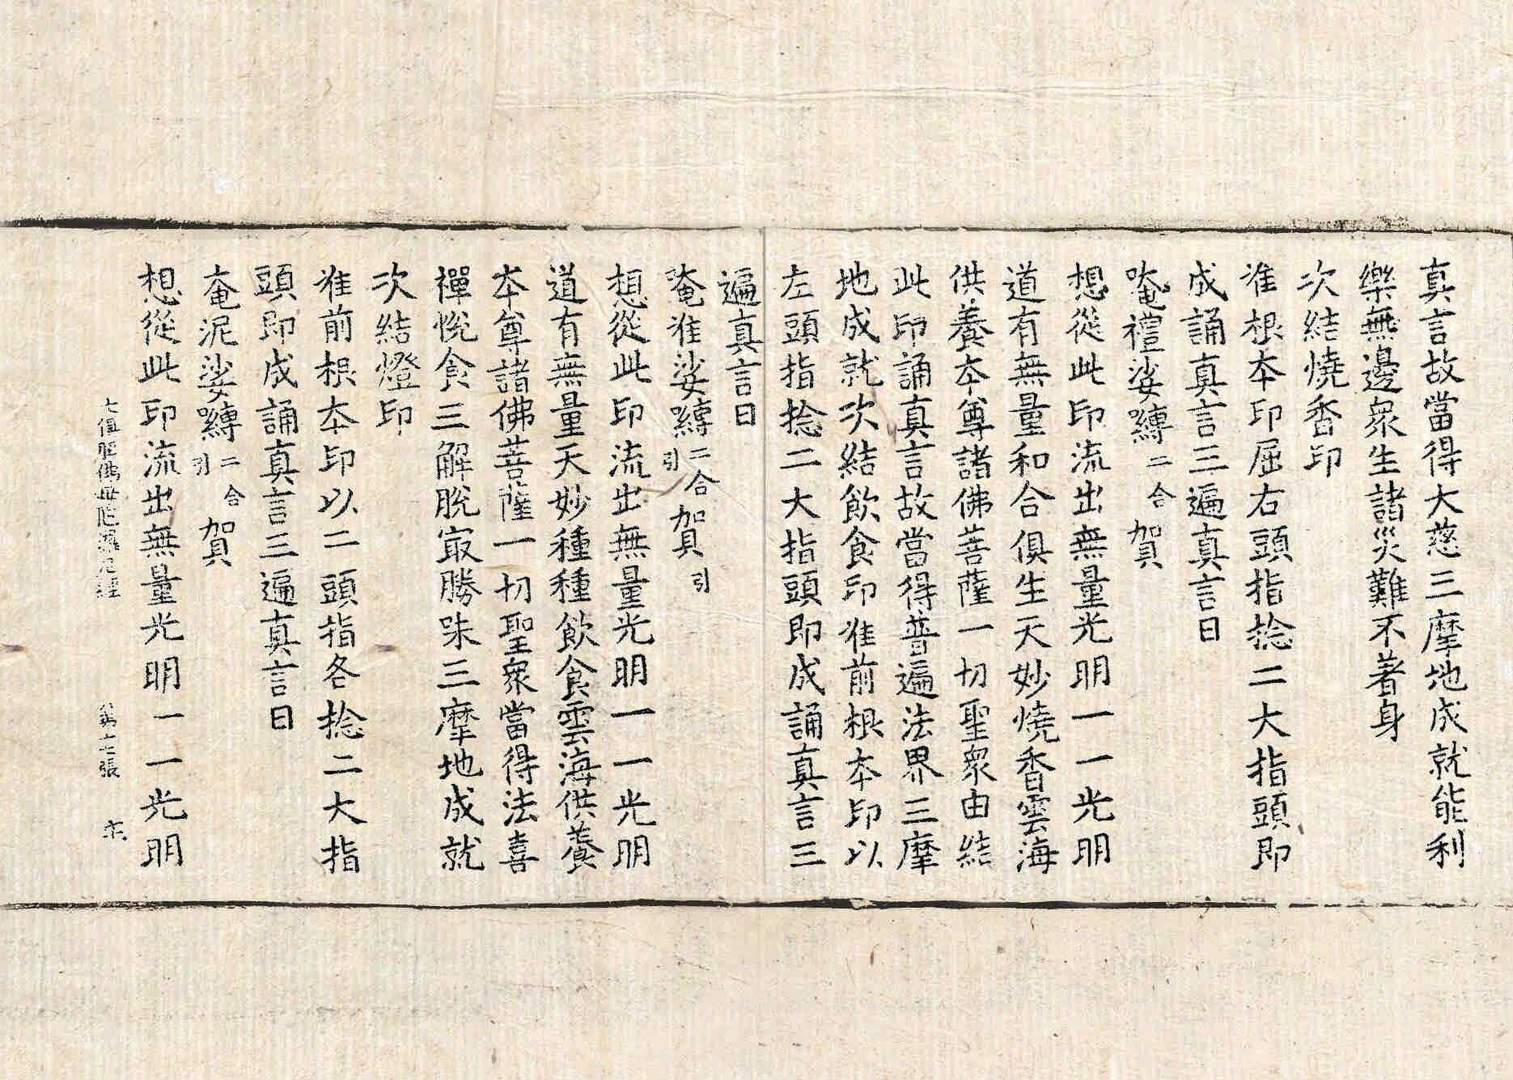 真言故當得大慈三摩地成就能利
樂無邊衆生諸災難不著身
次結燒香印
准根本印屈右頭指捻二大指頭即
成誦真言三遍真言曰
唵禮娑嚩二合賀
想從此印流出無量光明一一光明
道有無量和合俱生天妙燒香雲海
供養本尊諸佛菩薩一切聖衆由結
此印誦真言故當得普遍法界三摩
地成就次結飲食印准前根本印以
左頭指捻二大指頭即成誦真言三
遍真言曰
唵准娑嚩二合引賀引
想從此印流出無量光明一一光明
道有無量天妙種種飲食雲海供養
本尊諸佛菩薩一切聖衆當得法喜
禪悅食三解脫㝡勝味三摩地成就
次結燈印
准前根本印以二頭指各捻二大指
頭即成誦真言三遍真言曰
奄泥娑嚩二合引賀
七俱胝佛母陁羅尼經 第七張
想從此印流出無量光明一一光明